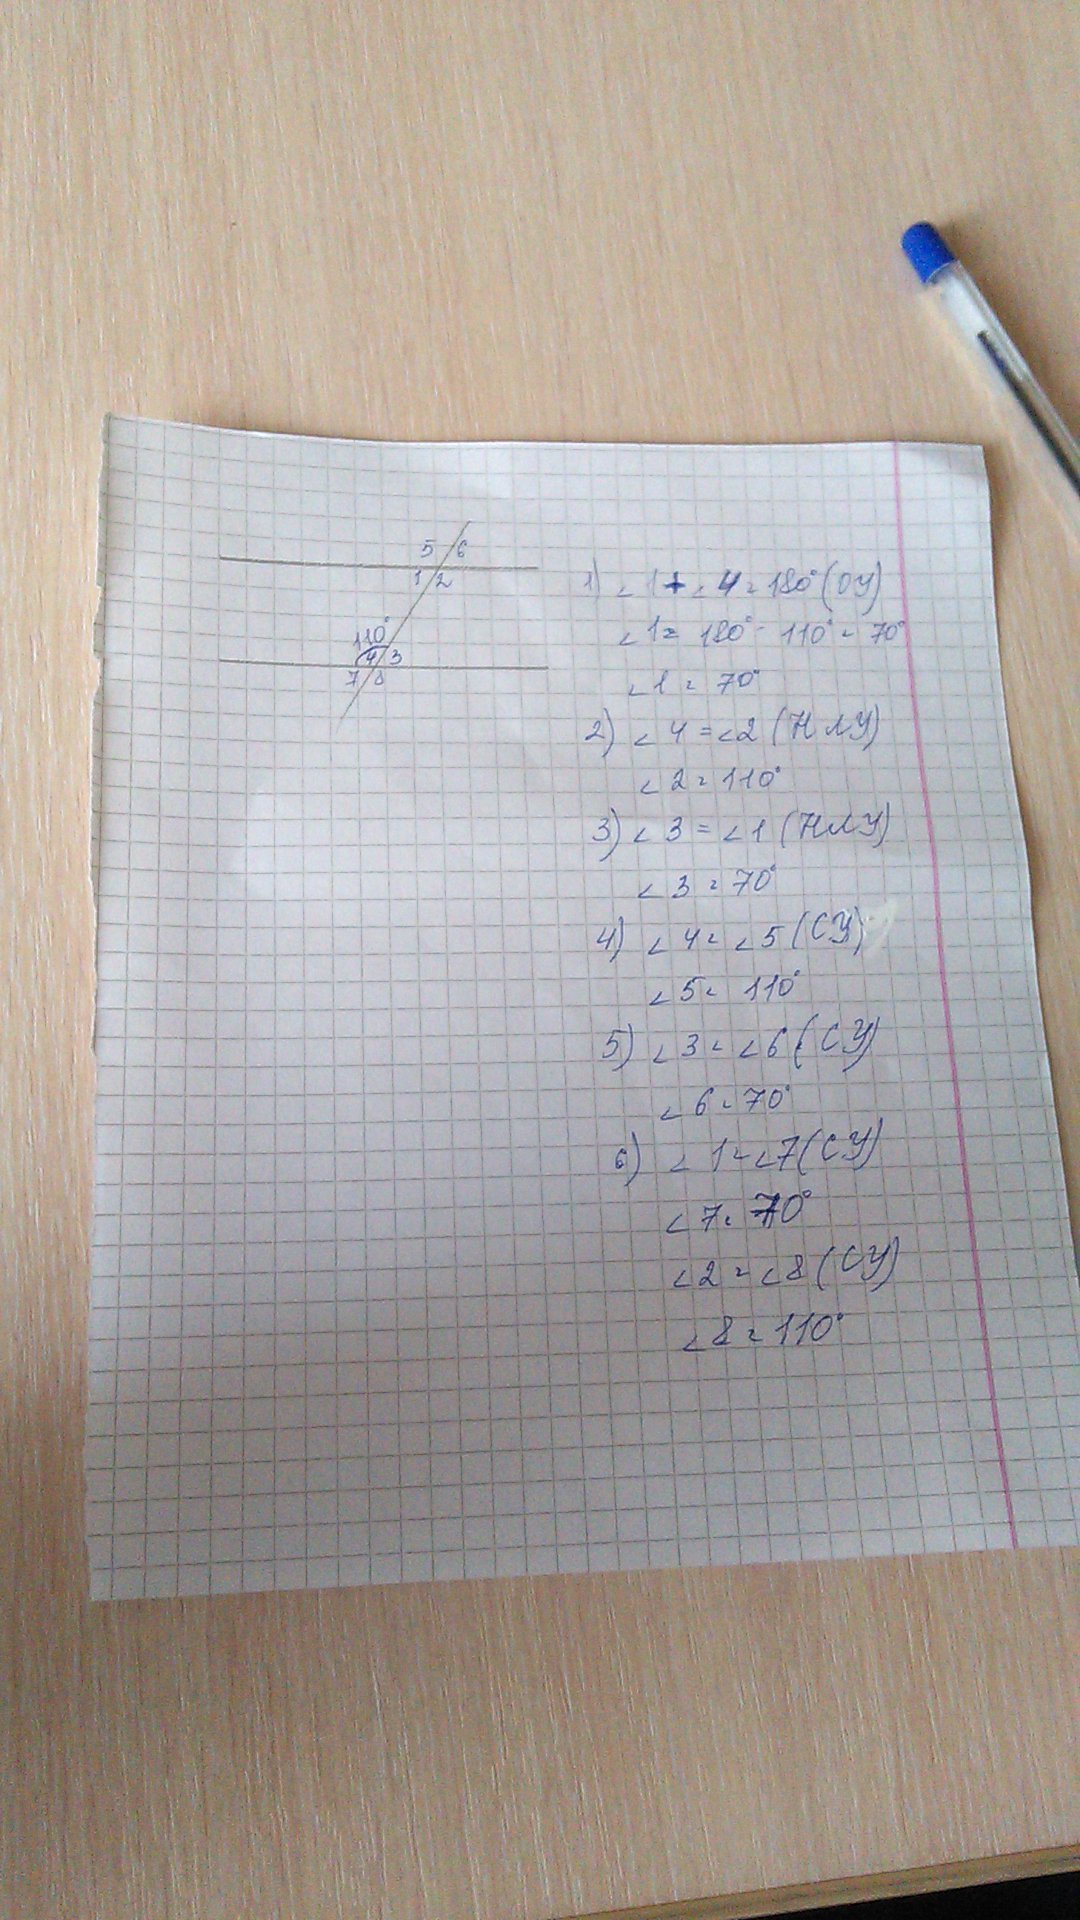 5 6
1 2
110°
4 3
7 8
1) ∠1+∠4=180° (ОУ)
∠1=180°-110°=70°
∠1=70°
2) ∠4=∠2 (НЛУ)
∠2=110°
3) ∠3=∠1 (НЛУ)
∠3=70°
4) ∠4=∠5 (СУ)
∠5=110°
5) ∠3=∠6 (СУ)
∠6=70°
6) ∠1=∠7 (СУ)
∠7=70°
∠2=∠8 (СУ)
∠8=110°